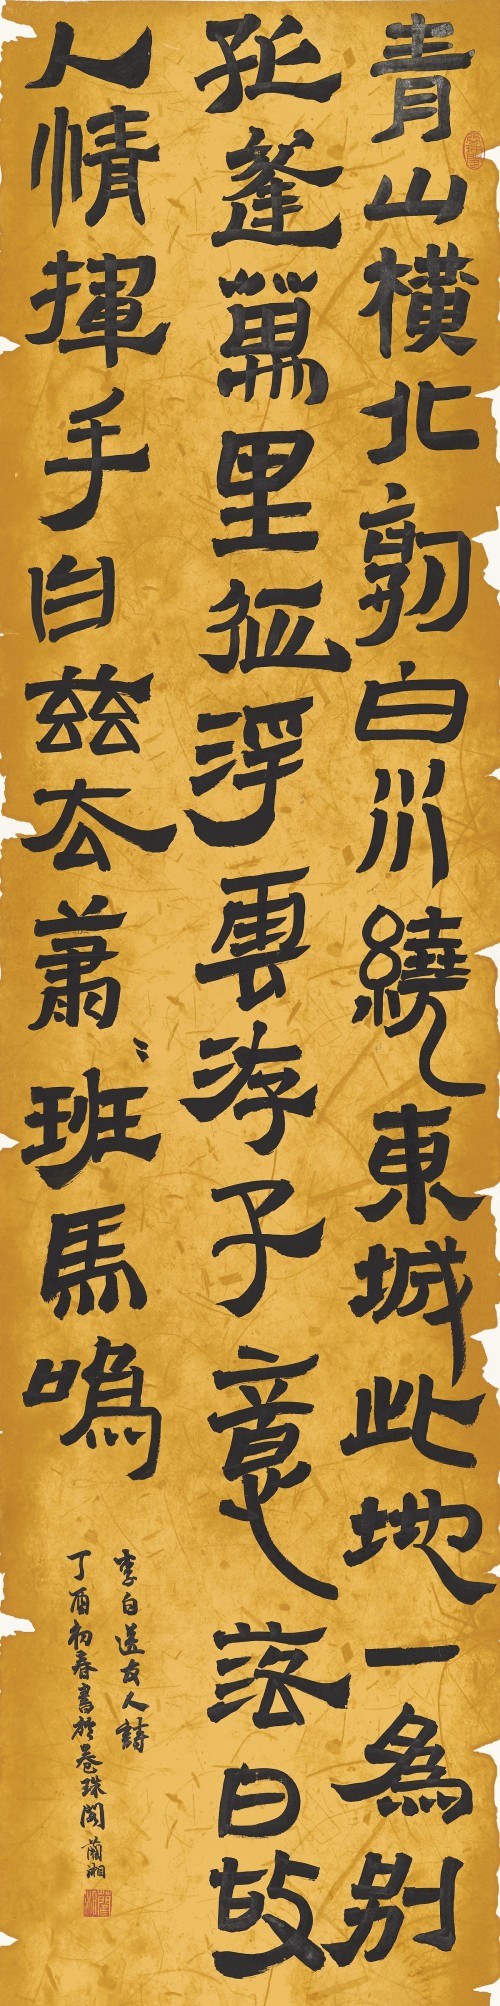 青山橫北郭白水繞東城此地一為別
孤蓬萬里征浮雲游子意落日故
人情揮手自茲去蕭〻班馬鳴
李白送友人詩
丁酉初春書於卷珠閣 蘭湘